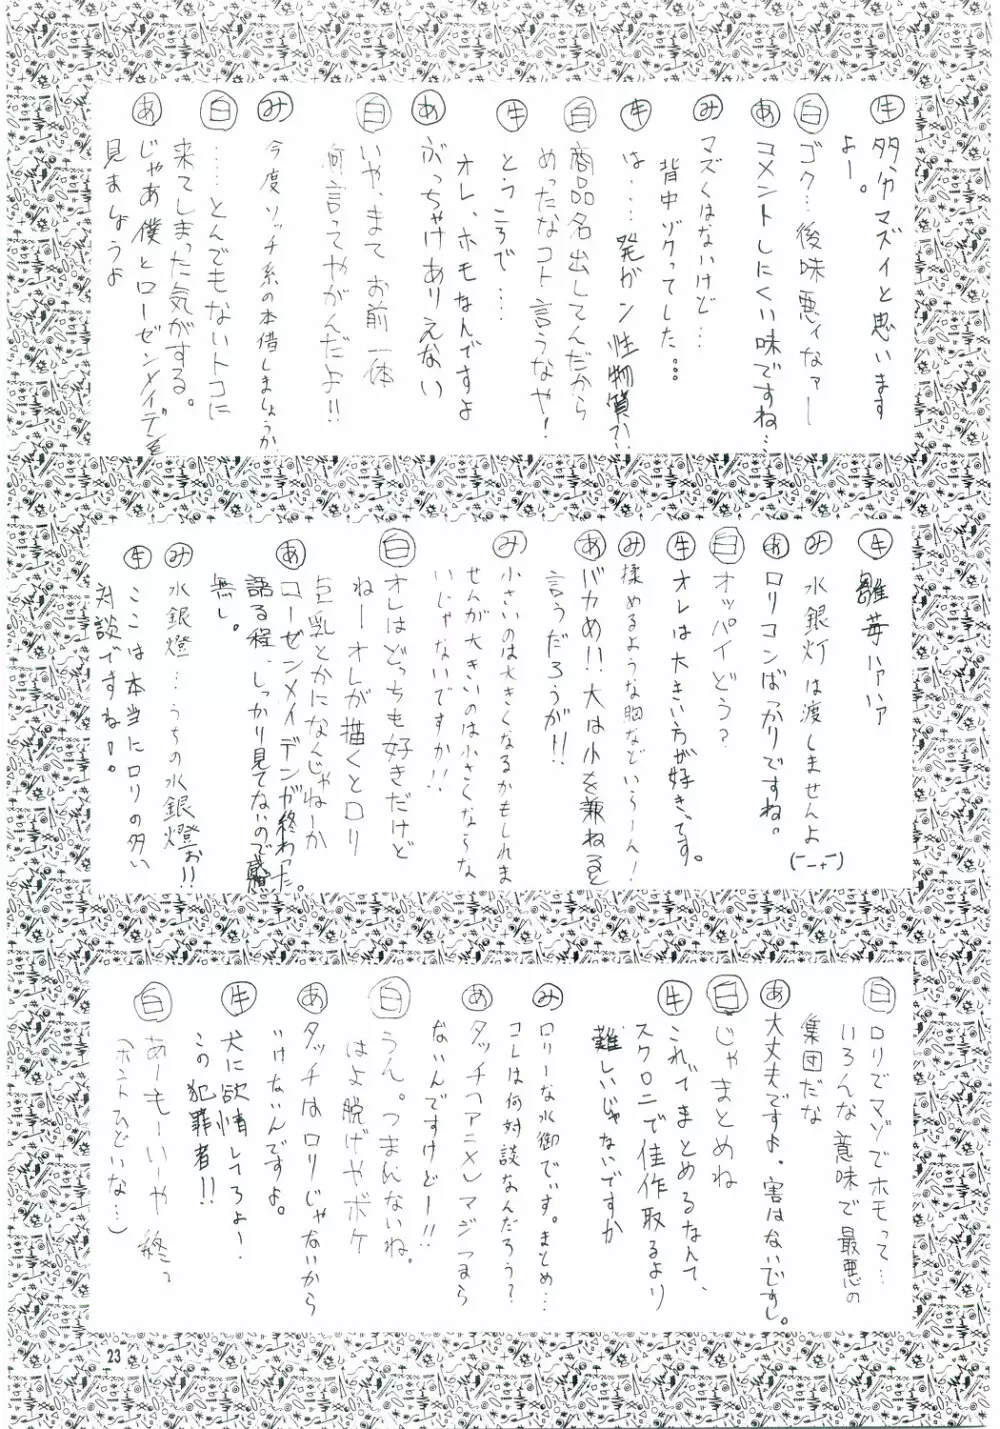 牛 多分マズイと思います
よー。
白 ゴク…後味悪ィなァー
あ コメントしにくい味ですね…
み マズくはないけど…
背中ゾクってした…
牛 は…発ガン性物質か!
白 商品名出してんだから
めったなコト言うなや!
牛 ところで…
オレ、ホモなんですよ
あ ぶっちゃけありえない
白 いや、まて お前一体
何言ってやがんだよ!!
み 今度ソッチ系の本借しましょうか
白 ……とんでもないトコに
来てしまった気がする。
あ じゃあ僕とローゼンメイデンを
見ましょうよ
牛 雛苺ハァハァ
み 水銀灯は渡しませんよ
あ ロリコンばっかりですね。
白 オッパイどう?
牛 オレは大きい方が好きです。
み 揉めるような胸などいら〜ん!
あ バカめ!!大は小を兼ねると
言うだろうが!!
み 小さいのは大きくなるかもしれま
せんが大きいのは小さくな〜な
いじゃないですか!!
白 オレはどっちも好きだけど
ねーオレが描くとロリ
巨乳とかになんじゃねーか
あ ローゼンメイデンが終わった。
語る程、しっかり見てないので感想
無し。
み 水銀燈…うちの水銀燈ぉ!!
牛 ここは本当にロリの多い
対談ですね!。
白 ロリでマゾでホモって…
いろんな意味で最悪の
集団だな
あ 大丈夫ですよ。害はないですし。
白 じゃまとめね
牛 これでまとめるなんて、
スクロニで佳作取るより
難しいじゃないですか
み ロリーな水御でぃす。まとめ…
コレは何対談なんだろう?
あ タッチ(アニメ)マジつまら
ないんですけどー!!
白 うん。つまんないね。
はよ脱げやボケ
あ タッチはロリじゃないから
いけないんですよ。
牛 犬に欲情してろよー!
この犯罪者!!
白 あーもーいーや 終っ
(ホントひどいな…)
23